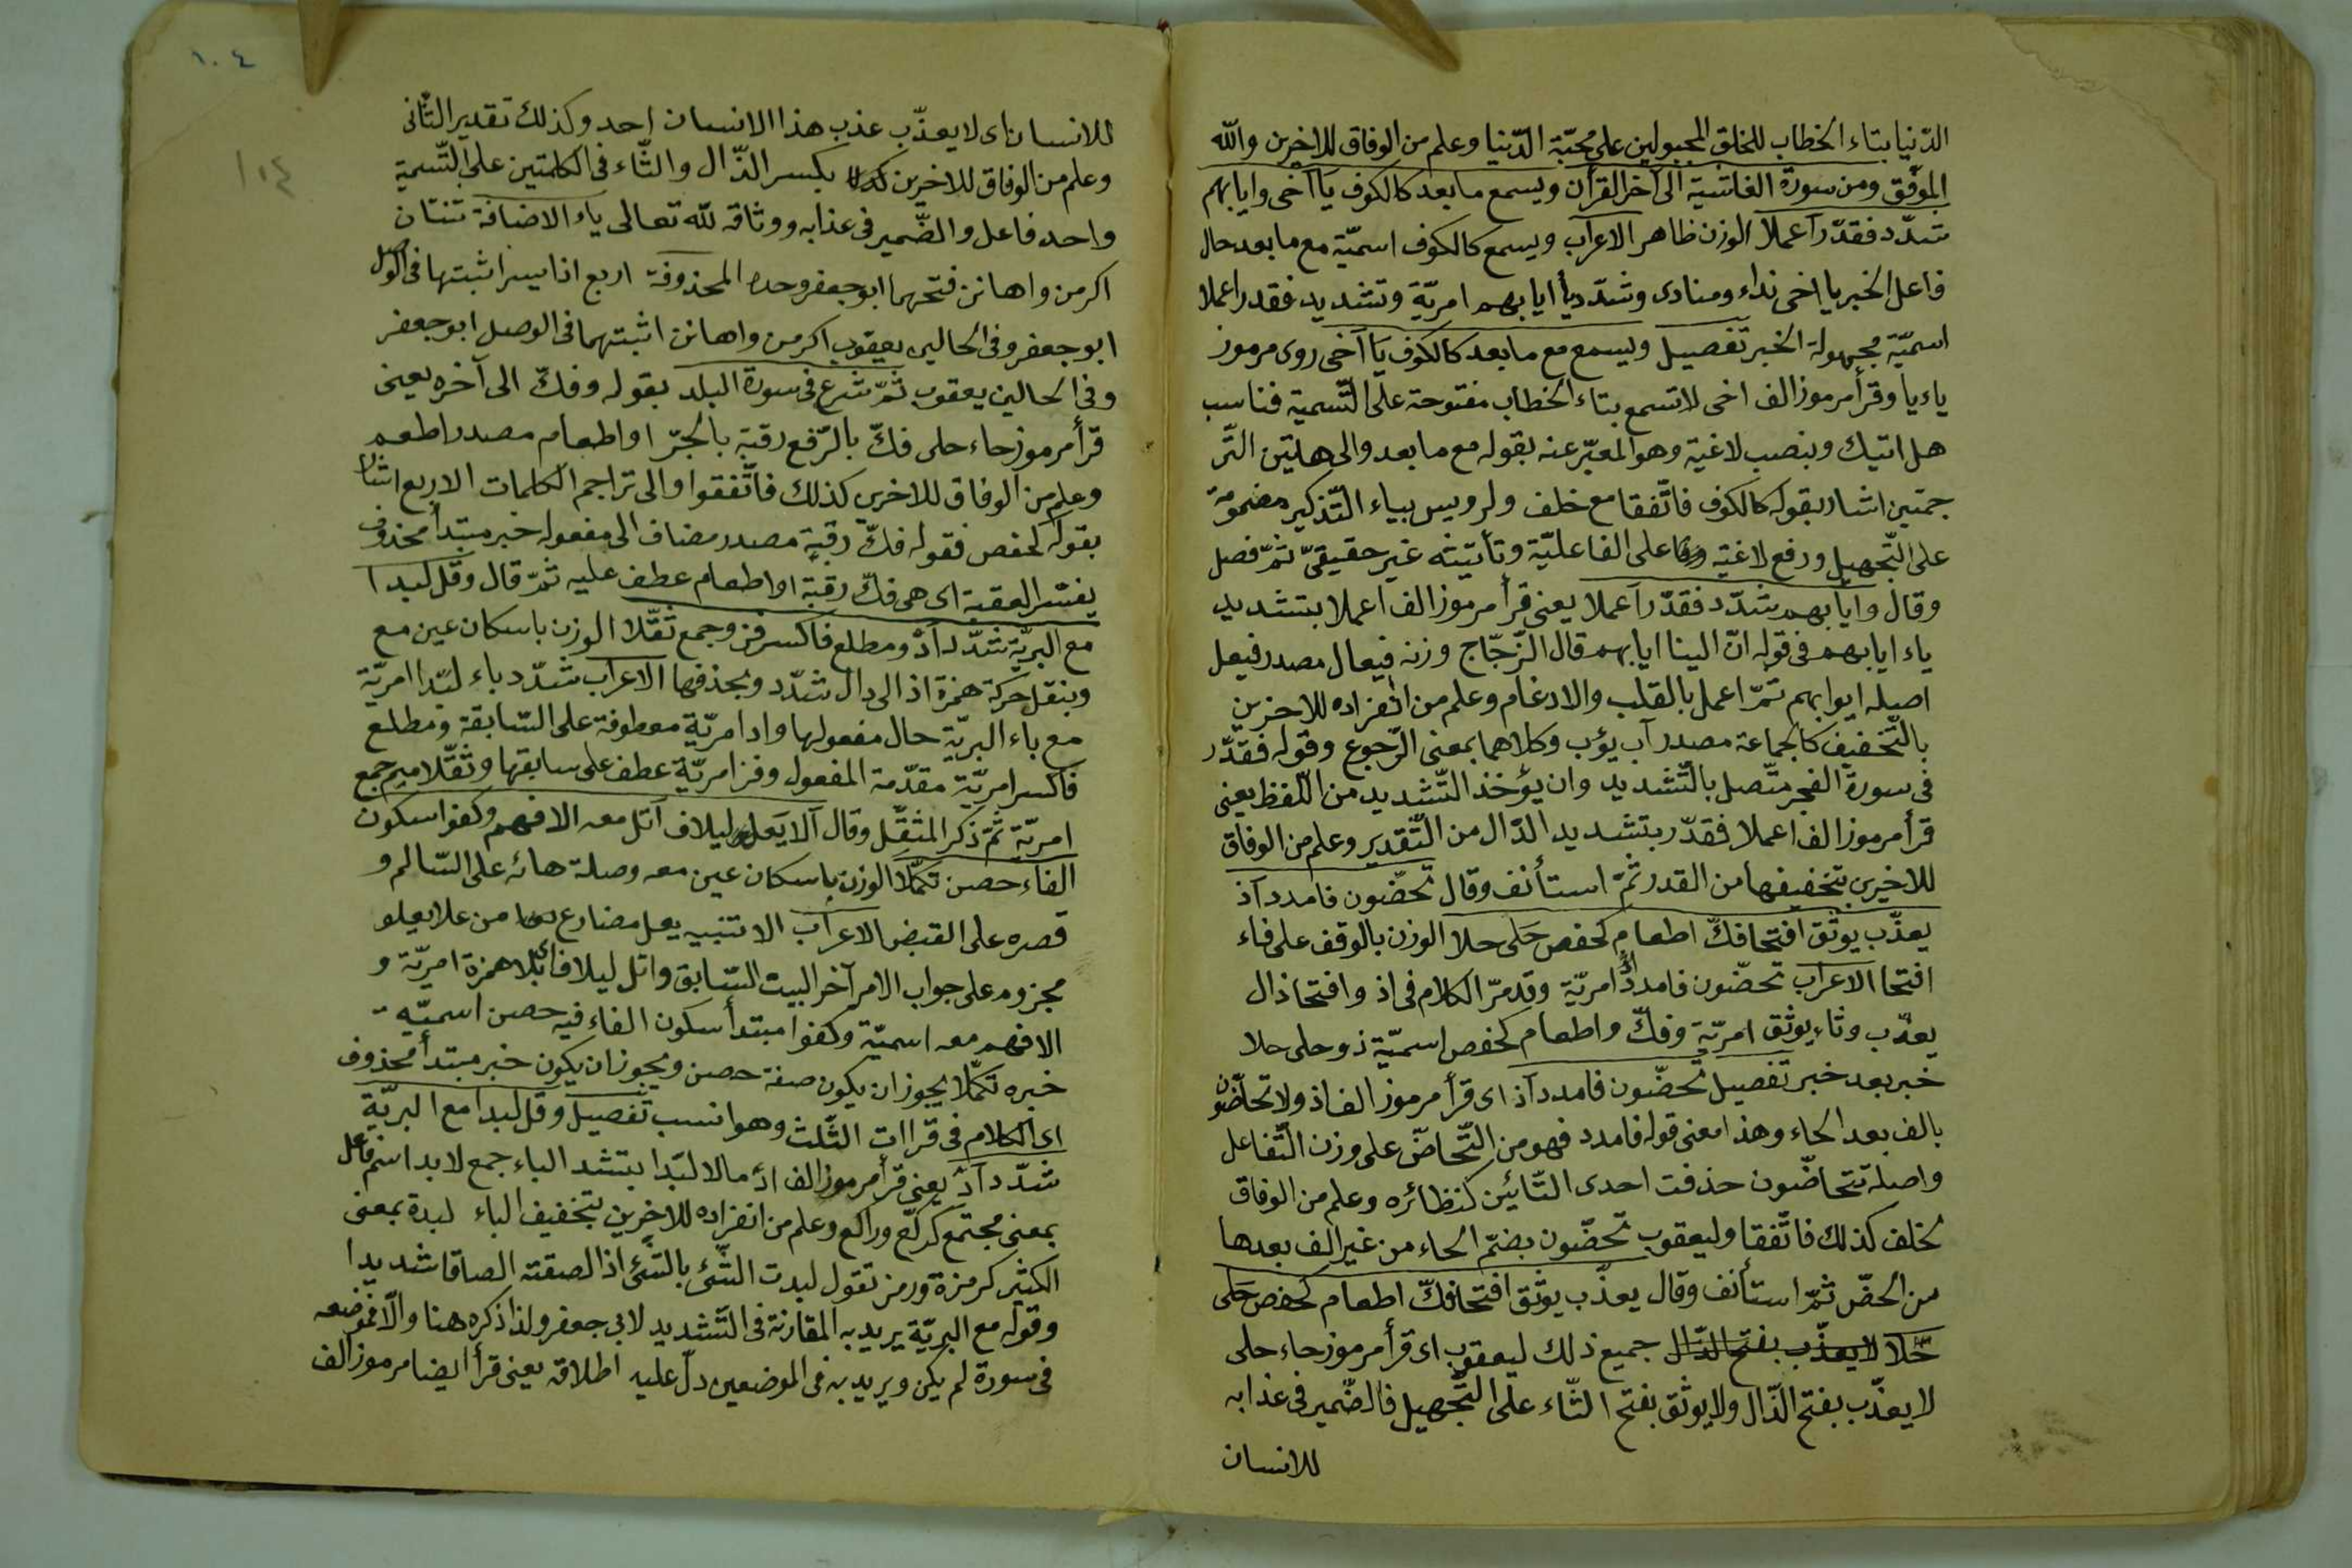 الدّنيا بتاء الخطاب للخلق المجبولين على محبّة الدّنيا وعلم من الوفاق للاخرين والله
الموفّق ومن سورة الغاشية الى آخر القرآن ويسمع ما بعد كالكوف يا آخى وايابهم
شدّد فقدّر آعملا الوزن ظاهر الاعراب ويسمع كالكوف اسميّة مع ما بعد حال
فاعل الخبر يا اخى نداء ومنادى وشدّد يأ ايابهم امريّة وتشديد فقدر اعملا
اسميّة مجهولة الخبر تفصيل ويسمع مع ما بعد كالكوف يا آخى روى مرموز
ياء يا وقرأ مرموز الف اخى لا تسمع بتاء الخطاب مفتوحة على التّسمية فناسب
هل اتيك وبنصب لاغية وهو المعبّر عنه بقوله مع ما بعد والى هلتين التّر
جمتين اشار بقوله كالكوف فاتّفقا مع خلف ولرويس بياء التّذكير مضمومة
على التّجهيل ورفع لاغية على الفاعليّة وتأنيثه غير حقيقىّ ثمّ فصل
وقال وايابهم شدّد فقدّر آعملا يعنى قرأ مرموز الف اعملا بتشديد
ياء ايابهم فى قوله انّ الينا ايابهم قال الزّجّاج وزنه فيعال مصدر فيعل
اصيله ايوابهم ثمّ اعمل بالقلب والادغام وعلم من انفراده للاخرين
بالتّخفيف كالجماعة مصدر آب يؤب وكلاهما بمعنى الرّجوع وقوله فقدّر
فى سورة الفجر متّصل بالتّشديد وان يؤخذ التّشديد من اللّفظ يعنى
قرأ مرموز الف اعملا فقدّر بتشديد الدّال من التّقدير وعلم من الوفاق
للاخرين بتخفيفها من القدر ثمّ استأنف وقال تحضّون فامدد آذ
يعذّب يوثق افتحا فكّ اطعام كحفص حَلى حلا الوزن بالوقف على فاء
افتحا الاعراب تحضّون فامددْ امريّة وقد مرّ الكلام فى اذ وافتحا ذال
يعذّب وثاء يوثق امريّة وفكّ واطعام كحفص اسميّة ذو حلى حلا
خبر بعد خبر تفصيل تحضّون فامدد آذ اى قرأ مرموز الف اذ ولا تحاضّون
بالف بعد الحاء وهذا معنى قوله فامدد فهو من التّحاضّ على وزن التّفاعل
واصله تتحاضّون حذفت احدى التّائين كنظائره وعلم من الوفاق
لخلف كذلك فاتّفقا وليعقوب تحضّون بضمّ الحاء من غير الف بعدها
من الحضّ ثمّ استأنف وقال يعذّب يوثق افتحا فكّ اطعام كحفص حَلى
حّلا لا يعذّب بفتح الذّال جميع ذلك ليعقوب اى قرأ مرموز حاء حلى
لا يعذّب بفتح الذّال ولا يوثق بفتح الثّاء على التّجهيل فالضّمير فى عذابه
للانسان
١٠٤
١٠٤
للانسان اى لا يعذّب عذب هذا الانسان احد وكذلك تقدير الثّانى
وعلم من الوفاق للاخرين بكسر الذّال والثّاء فى الكلمتين على التّسمية
واحد فاعل والضّمير فى عذابه ووثاقه لله تعالى ياء الاضافة ثنتان
اكرمن واهانن فتحهما ابو جعفر وحده المحذوفة اربع اذا يسر اثبتها فى الوصل
ابو جعفر وفى الحالين يعقوب اكرمن واهانن اثبتهما فى الوصل ابو جعفر
وفى الحالين يعقوب ثمّ شرع فى سورة البلد بقوله وفكّ الى آخره يعنى
قرأ مرموز حاء حلى فكّ بالرّفع رقبة بالجرّ او اطعام مصدر اطعم
وعلم من الوفاق للاخرين كذلك فاتّفقوا والى تراجم الكلمات الاربع اشار
بقوله كحفص فقوله فكّ رقبة مصدر مضاف الى مفعوله خبر مبتدأ محذوف
يفسّر العقبة اى هى فكّ رقبة او اطعام عطف عليه ثمّ قال وقل لبدا
مع البريّة شدّد آدْ ومطلع فاكسر فز وجمع ثقّلا الوزن باسكان عين مع
وبنقل حركة همزة اذ الى دال شدّد وبحذفها الاعراب شدّد باء لبّدا امريّة
مع باء البريّة حال مفعولها واد امريّة معطوفة على السّابقة ومطلع
فاكسر امريّة مقدّمة المفعول وفز امريّة عطف على سابقها وثقّلا ميم جمع
امريّة ثمّ ذكر المثقّل وقال آلا يَعل ليلاف آتل معه الافهم وكفوا سكون
الفاء حصن تكمّلا الوزن باسكان عين معه وصلة هائه على السّالم و
قصره على القبض الاعراب الا تنبيه يعل مضارع من علا يعلو
مجزوم على جواب الامر آخر البيت السّابق واتل ليلاف بلا همزة امريّة و
الافهم معه اسميّة وكفوا مبتدأ سكون الفاء فيه حصن اسميّة
خبره تكمّلا يجوز ان يكون صفة حصن ويجوز ان يكون خبر مبتدأ محذوف
اى الكلام فى قراات الثّلث وهو انسب تفصيل وقل لبدا مع البريّة
شدّد آدْ يعنى قرأ مرموز الف ادْ مالا لبّدا بتشد الباء جمع لابد اسم فاعل
بمعنى مجتمع كركّع وراكع وعلم من انفراده للاخرين بتخفيف الباء لبدة بمعنى
الكثير كرمزة ورمز تقول لبدت الشّئ بالشّئ اذ الصقته الصاقا شديدا
وقوله مع البريّة يريد به المقارنة فى التّشديد لابى جعفر ولذا ذكره هنا والّا فموضعه
فى سورة لم يكن ويريد به فى الموضعين دلّ عليه اطلاقه يعنى قرأ ايضا مرموز الف